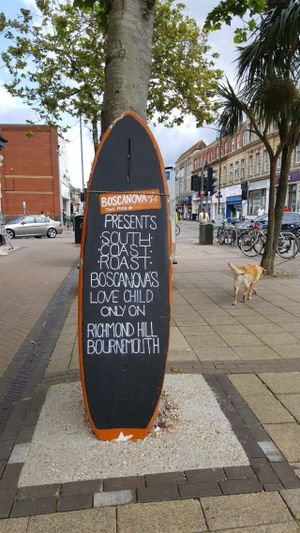 BOSCANOVA
PRESENTS
SOUTH
COAST
ROAST
BOSCANOVA'S
LOVE CHILD
ONLY ON
RICHMOND HILL
BOURNEMOUTH